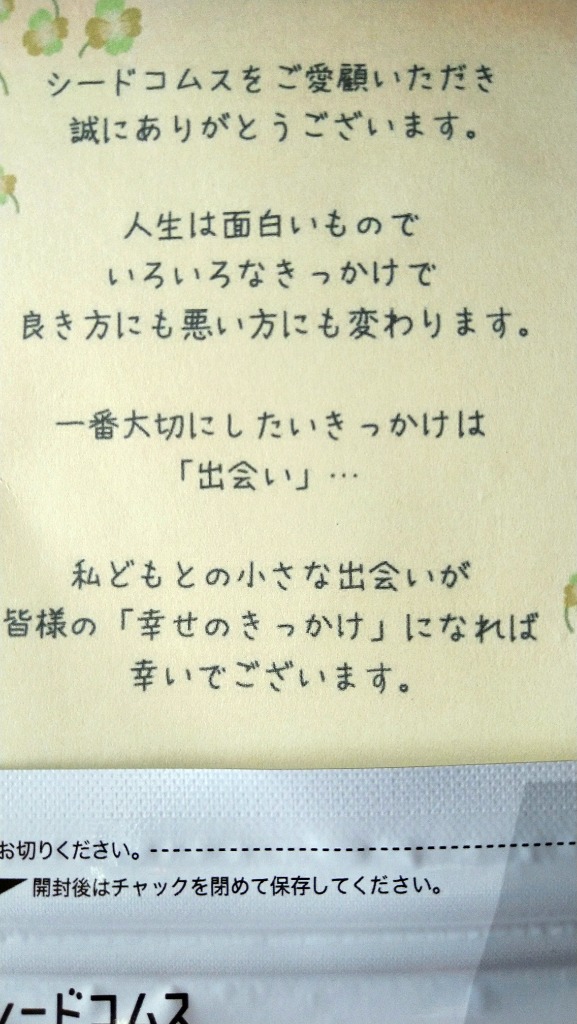 シードコムスをご愛顧いただき
誠にありがとうございます。
人生は面白いもので
いろいろなきっかけで
良き方にも悪い方にも変わります。
一番大切にしたいきっかけは
「出会い」…
私どもとの小さな出会いが
皆様の「幸せのきっかけ」になれば
幸いでございます。
お切りください。
開封後はチャックを閉めて保存してください。
シードコムス